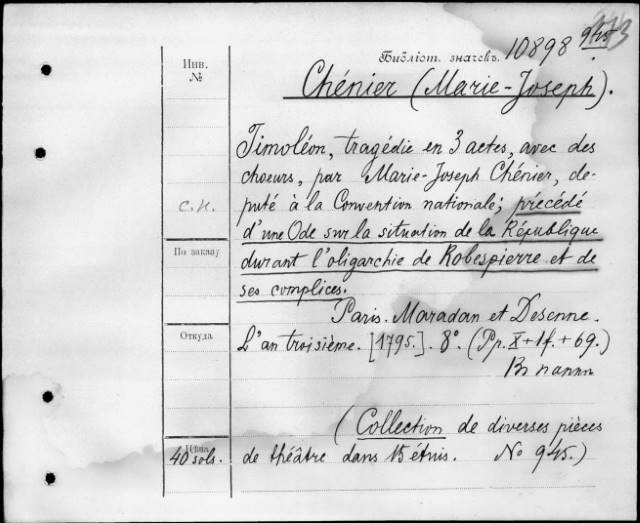 Библіот. значекъ 10898 945
Инв.
№
Chénier (Marie-Joseph).
Timoléon, tragédie en 3 actes, avec des
choeurs, par Marie-Joseph Chénier, de-
с.н.
puté à la Convention nationale; précédé
d'une Ode sur la situation de la République
По заказу
durant l'oligarchie de Robespierre et de
ses complices.
Paris. Maradan et Desenne.
Откуда
L'an troisième. [1795]. 8º. (Pp. X+1f.+69.)
Въ папкѣ
(Collection de diverses pièces
Цѣна
40 sols.
de théâtre dans 15 étuis. No 945.)